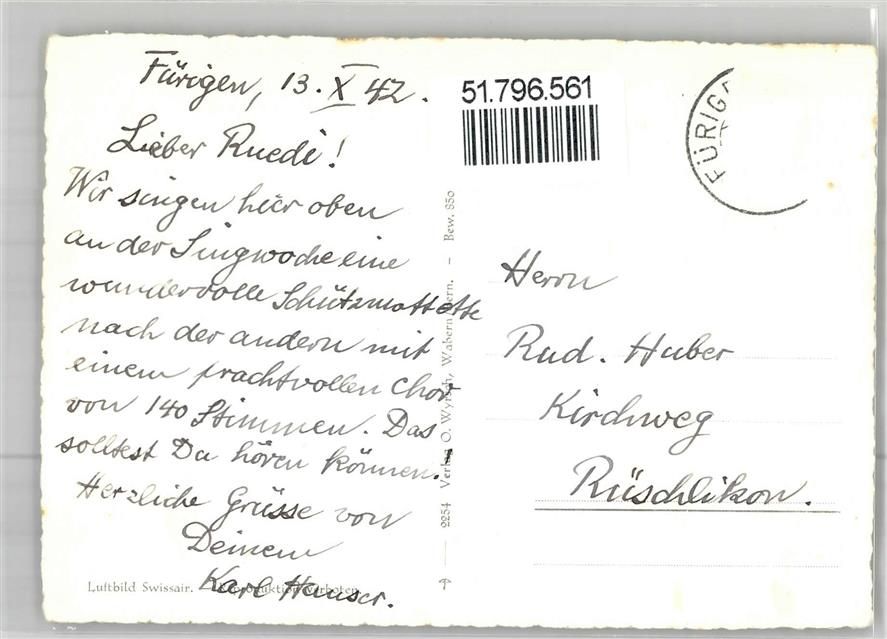 Fürigen, 13. X 42.
Lieber Ruedi!
Wir singen hier oben
an der Singwoche eine
wundervolle Schützmottette
nach der andern mit
einem prachtvollen Chor
von 140 Stimmen. Das
solltest Du hören können!
Herzliche Grüsse von
Deinem
Karl Hauser.
Luftbild Swissair. Reproduktion verboten
2254 Verlag O. Wyrsch, Wabern-Bern. – Bew. 850
51.796.561
FÜRIG
Herrn
Rud. Huber
Kirchweg
Rüschlikon.